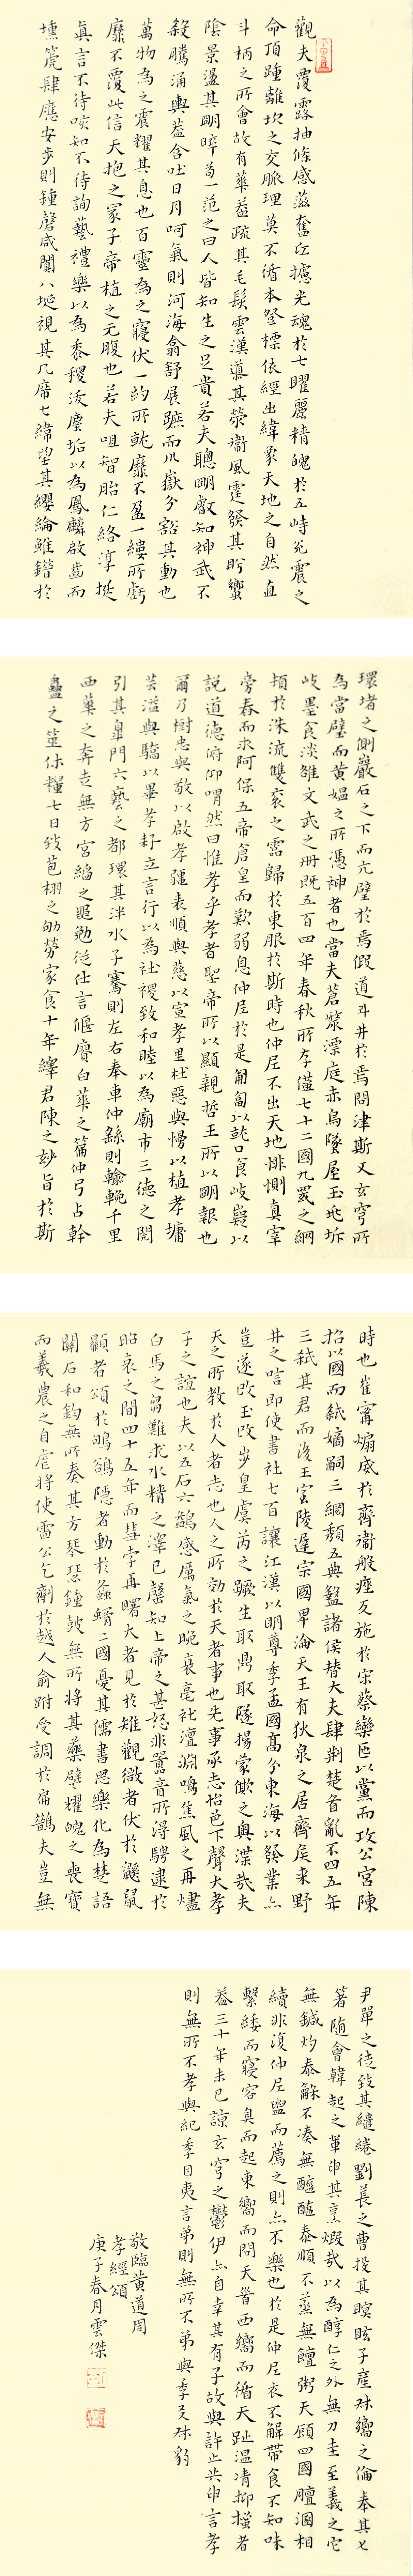 觀夫覆露抽條感蒞奮
光魂於七曜麗精魄於五峙
命頂踵離坎之交脈理莫不循本發標依經出緯象天地之自然直
斗柄之所會故有華蓋疏其毛髮雲漢
陰景盪其明晬
一范之曰人皆知生之足貴若夫聰明叡知神武不
殺騰涌輿蓋含吐日月呵氣則河海翕舒展蹠而川嶽分豁其動也
萬物為之震耀其息也百靈為之寢伏一約所
靡不盈一縷所虧
靡不覆此信天抱之冢子帝植之元腹也若夫咀智胎仁絡淳
真言不待
知不待詢藝禮樂以為黍稷
塵垢以為鳳麟啟齒而
壎箎肆應安步則鍾磬咸闐八埏視其几席七緯望其纓綸
於
環堵之側巖石之下而亢壁於焉假道斗井於焉問津斯又玄穹所
為當璧而黃媼之所憑神者也當夫蒼
漂庭赤烏墜屋玉兆坼
岐墨食淡雒文武之冊既五百四年春秋所存僅七十二國九罭之綱
頹於洙流雙袞之
歸於東服於斯時也仲尼不出天地悱惻真宰
旁舂而求阿保五帝倉皇而歎弱息仲尼於是匍匐以就口食岐嶷以
說道德俯仰喟然曰惟孝乎孝者聖帝所以顯親哲王所以明報也
爾乃樹忠與敬以啟孝疆表順與慈以宣孝里杜惡與慢以植孝墉
芸溢與驕以畢孝耔立言行以為社稷致和睦以為廟市三德之閎
引其皐門六藝之都環其泮水子騫則左右奉車仲繇則輸輓千里
西華之奔走無方宮縚之黽勉從仕言偃賡白華之篇仲弓占幹
蠱之筮休糧七日
苞栩之劬勞家食十年繹君陳之妙旨於斯
時也崔甯煽虐於齊衛般痤反施於宋蔡欒匝以黨而攻公宮陳
招以國而弒嫡嗣三綱頹五典盭諸侯替大夫肆荆楚首亂不四五年
三弒其君而後王室陵遲宗國畢淪天王有狄泉之居齊侯來野
井之唁即使書社七百讓江漢以明尊季孟國高分東海以發業亦
豈遂改玉改步皇虞芮之蹶生取鼎取隧揚蒙
之輿渫哉夫
天之所教於人者志也人之所効於天者事也先事承志怡色下聲大孝
子之誼也夫以五石六鷁感厲氣之晚衰亳社澶淵鳴焦風之再燼
白馬之芻難求水精之澤已罄知上帝之甚怒非嚚音所得騁逮於
昭哀之間四十五年而彗孛再曙大者見於雉觀微者伏於鼷鼠
顯者頌於鴝鵒隱者動於螽蝑二國憂其儒書思樂化為楚語
關石和鈞無所奏其方琴瑟鍾鼓無所將其藥壁耀魄之喪寶
而羲農之自虐將使雷公乞劑於越人俞跗受調於扁鵲夫豈無
尹單之徒致其繾綣劉萇之曹投其瞑眩子產叔嚮之倫奉其匕
箸隨會韓起之輩申其烹煆哉以為醇仁之外無刀圭至義之它
無鍼灼泰龢不湊無醯醢泰順不蒸無饘粥天顧四國膻涸相
續非復仲尼盥而薦之則亦不樂也於是仲尼衣不解帶食不知味
繫緌而寢容臭而起東嚮而問天
西嚮而循天趾溫凊抑搔者
蓋三十年未已諒玄穹之鬱伊亦自幸其有子故與許止共申言孝
則無所不孝與紀季目夷言弟則無所不弟與季友叔豹
敬臨黃道周
孝經頌
庚子春月雲傑